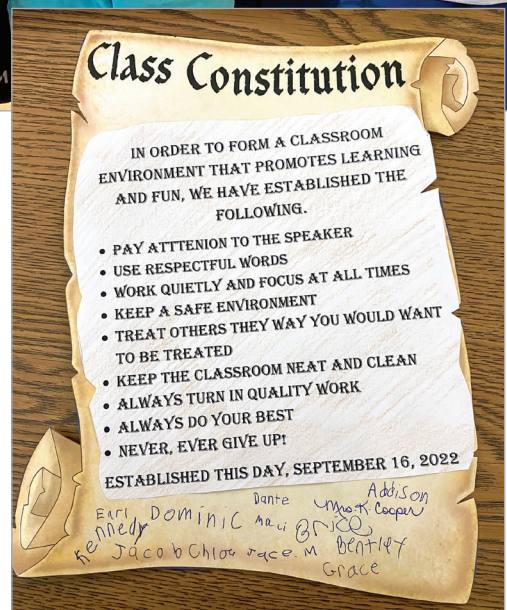 Class Constitution
IN ORDER TO FORM A CLASSROOM
ENVIRONMENT THAT PROMOTES LEARNING
AND FUN, WE HAVE ESTABLISHED THE
FOLLOWING.
• PAY ATTTENION TO THE SPEAKER
• USE RESPECTFUL WORDS
• WORK QUIETLY AND FOCUS AT ALL TIMES
• KEEP A SAFE ENVIRONMENT
• TREAT OTHERS THEY WAY YOU WOULD WANT
TO BE TREATED
• KEEP THE CLASSROOM NEAT AND CLEAN
• ALWAYS TURN IN QUALITY WORK
• ALWAYS DO YOUR BEST
• NEVER, EVER GIVE UP!
ESTABLISHED THIS DAY, SEPTEMBER 16, 2022
Dante Addison
Earl Dominic Maci Brice Mrs. K. Cooper
Kennedy Jacob Chloe Jace. M Bentley
Grace